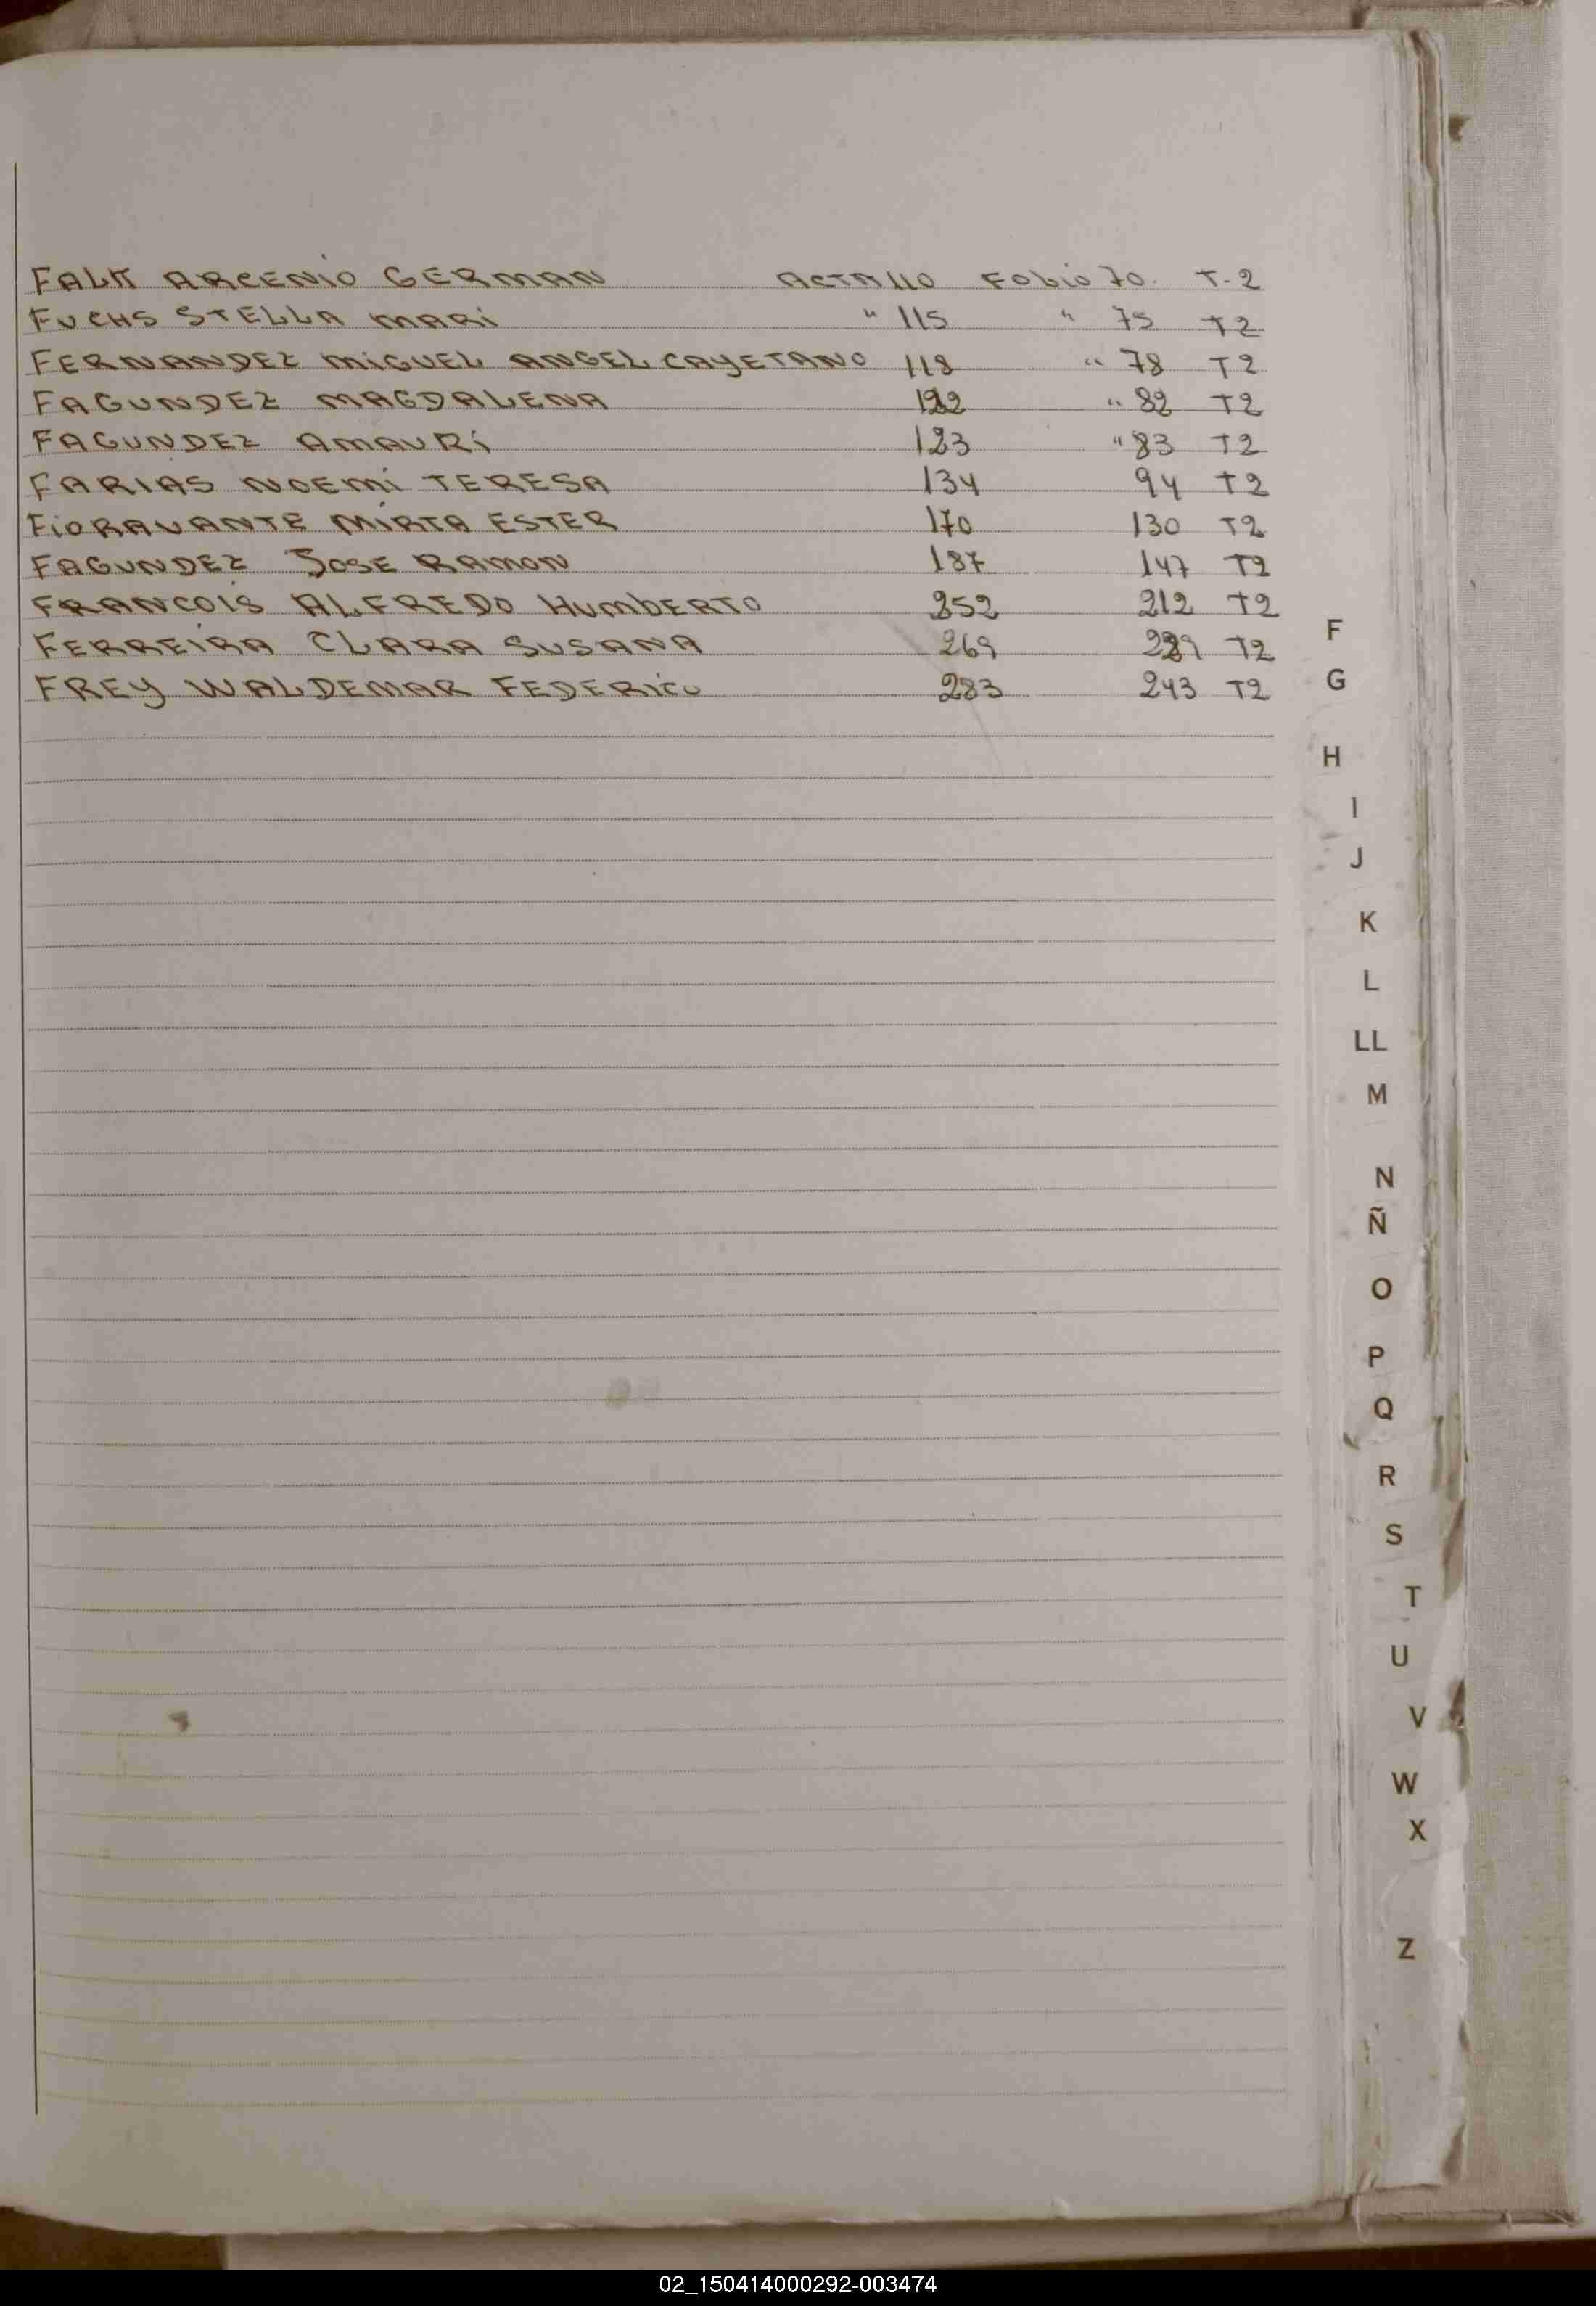 FALK ARCENIO GERMAN ACTA 110 FOLIO 70. T-2
FUCHS STELLA MARI " 115 " 75 T2
FERNANDEZ MIGUEL ANGEL CAYETANO 118 " 78 T2
FAGUNDEZ MAGDALENA 122 " 82 T2
FAGUNDEZ AMAURI 123 " 83 T2
FARIAS NOEMI TERESA 134 94 T2
FIORAVANTE MIRTA ESTER 170 130 T2
FAGUNDEZ JOSE RAMON 187 147 T2
FRANCOIS ALFREDO HUMBERTO 252 212 T2
FERREIRA CLARA SUSANA 269 229 T2
FREY WALDEMAR FEDERICO 283 243 T2
F
G
H
I
J
K
L
LL
M
N
Ñ
O
P
Q
R
S
T
U
V
W
X
Z
02_150414000292-003474